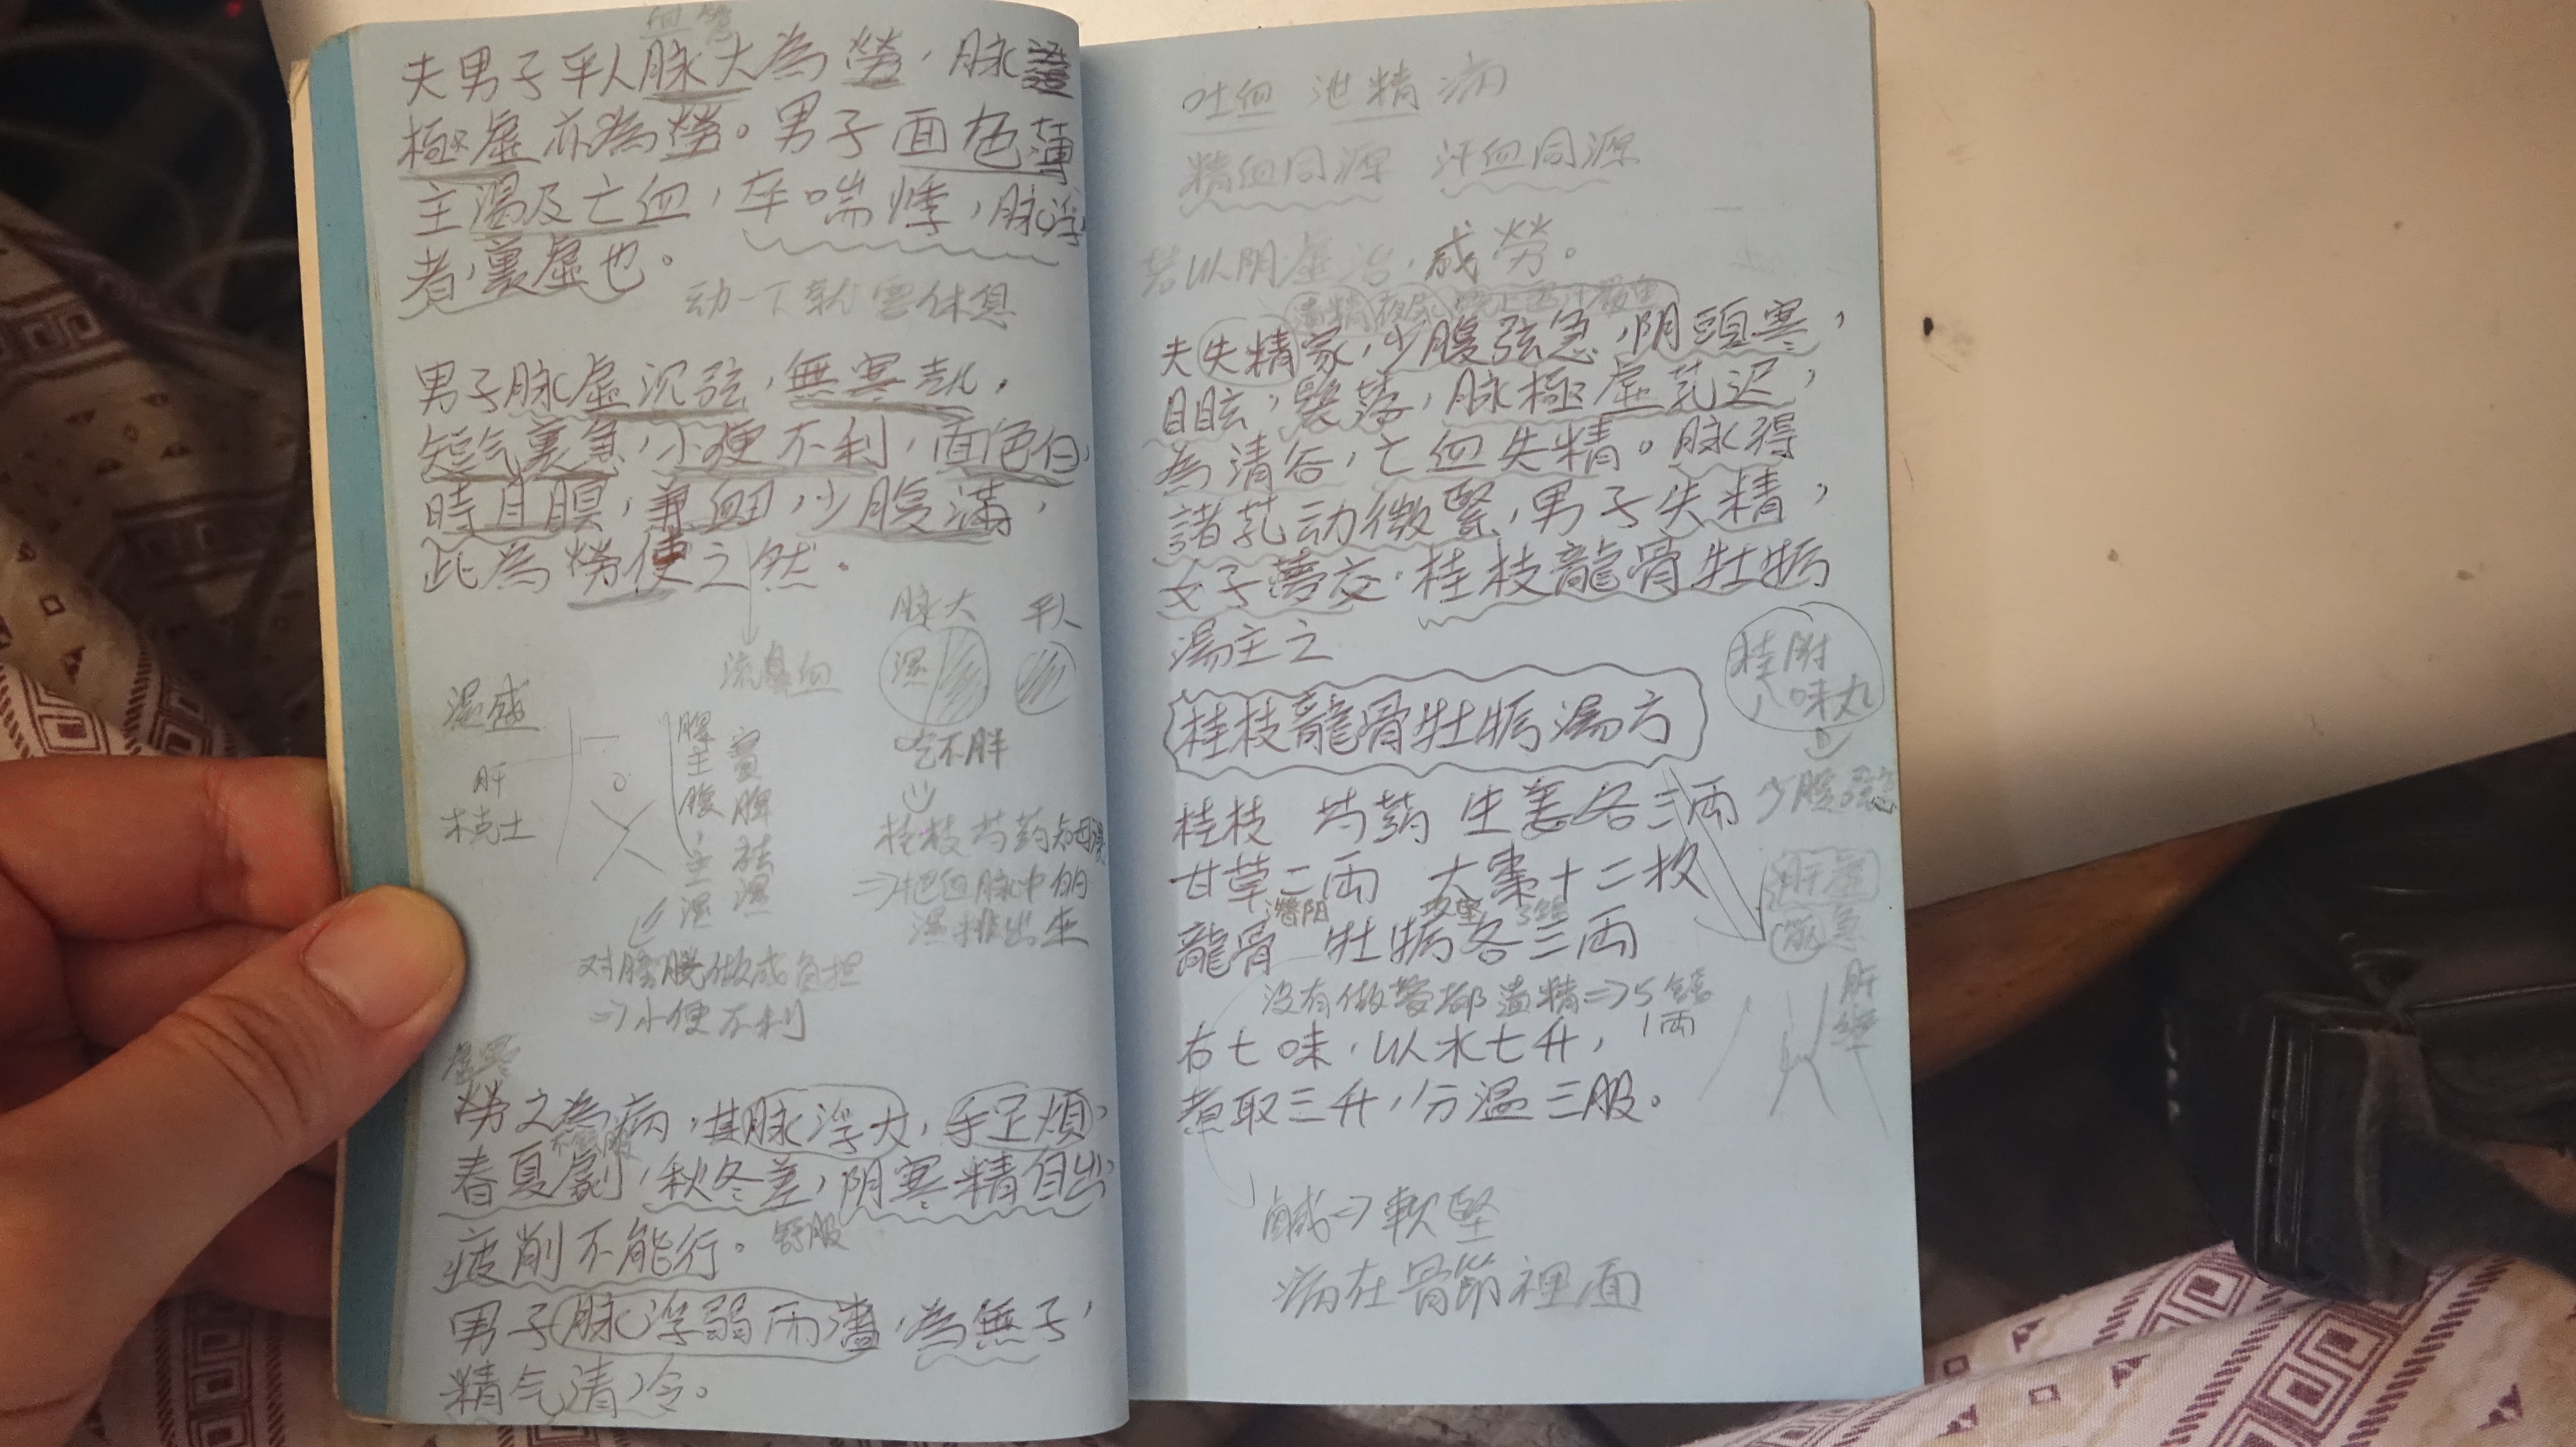 血管
夫男子平人脉大為勞，脉
極虛亦為勞。男子面色薄
主渴及亡血，卒喘悸，脉浮
者，裏虛也。
动一下就需休息
男子脉虛沉弦，無寒热，
短气裏急，小便不利，面色白，
時目瞑，兼衄，少腹滿，
此為勞使之然．
流鼻血
脉大 平人
濕
吃不胖
桂枝芍药知母湯
⇒把血脉中的
濕排出来
濕盛
肝
木克土
脾主腹，主濕
實脾祛濕
对膀胱做成負担
⇒小便不利
虛男
勞之為病，其脉浮大，手足煩，
春夏劇，秋冬差，阴寒精自出，
舒服
疲削不能行。
男子脉浮弱而濇，為無子，
精气清冷。
吐血 泄精 病
精血同源 汗血同源
若以阴虛治，成勞。
遺精
夫失精家，少腹弦急，阴頭寒，
目眩，髮落，脉極虛芤迟，
為清谷，亡血失精。脉得
諸芤动微緊，男子失精，
女子夢交．桂枝龍骨牡蛎
湯主之
桂枝龍骨牡蛎湯方
桂附
八味丸
少腹弦急
桂枝 芍葯 生姜各三両
甘草二両 大棗十二枚
濳阳
龍骨 牡蛎各三両
肝虛
急
肝經
没有做夢都遺精⇒5錢
1両
右七味，以水七升，
煮取三升，分温三服。
鹹⇒軟堅
病在骨節裡面